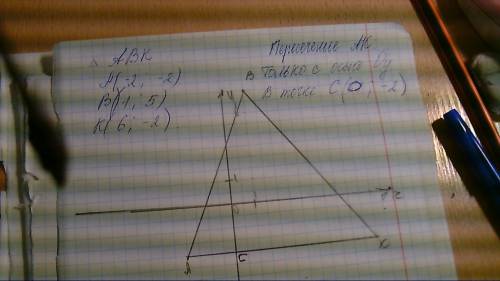 △ ABK
A(-2; -2)
B(1; 5)
K(6; -2)
Пересечение AK
только с осью Oy
в точке C(0; -2)
B
y
1
0
1
x
A
C
K